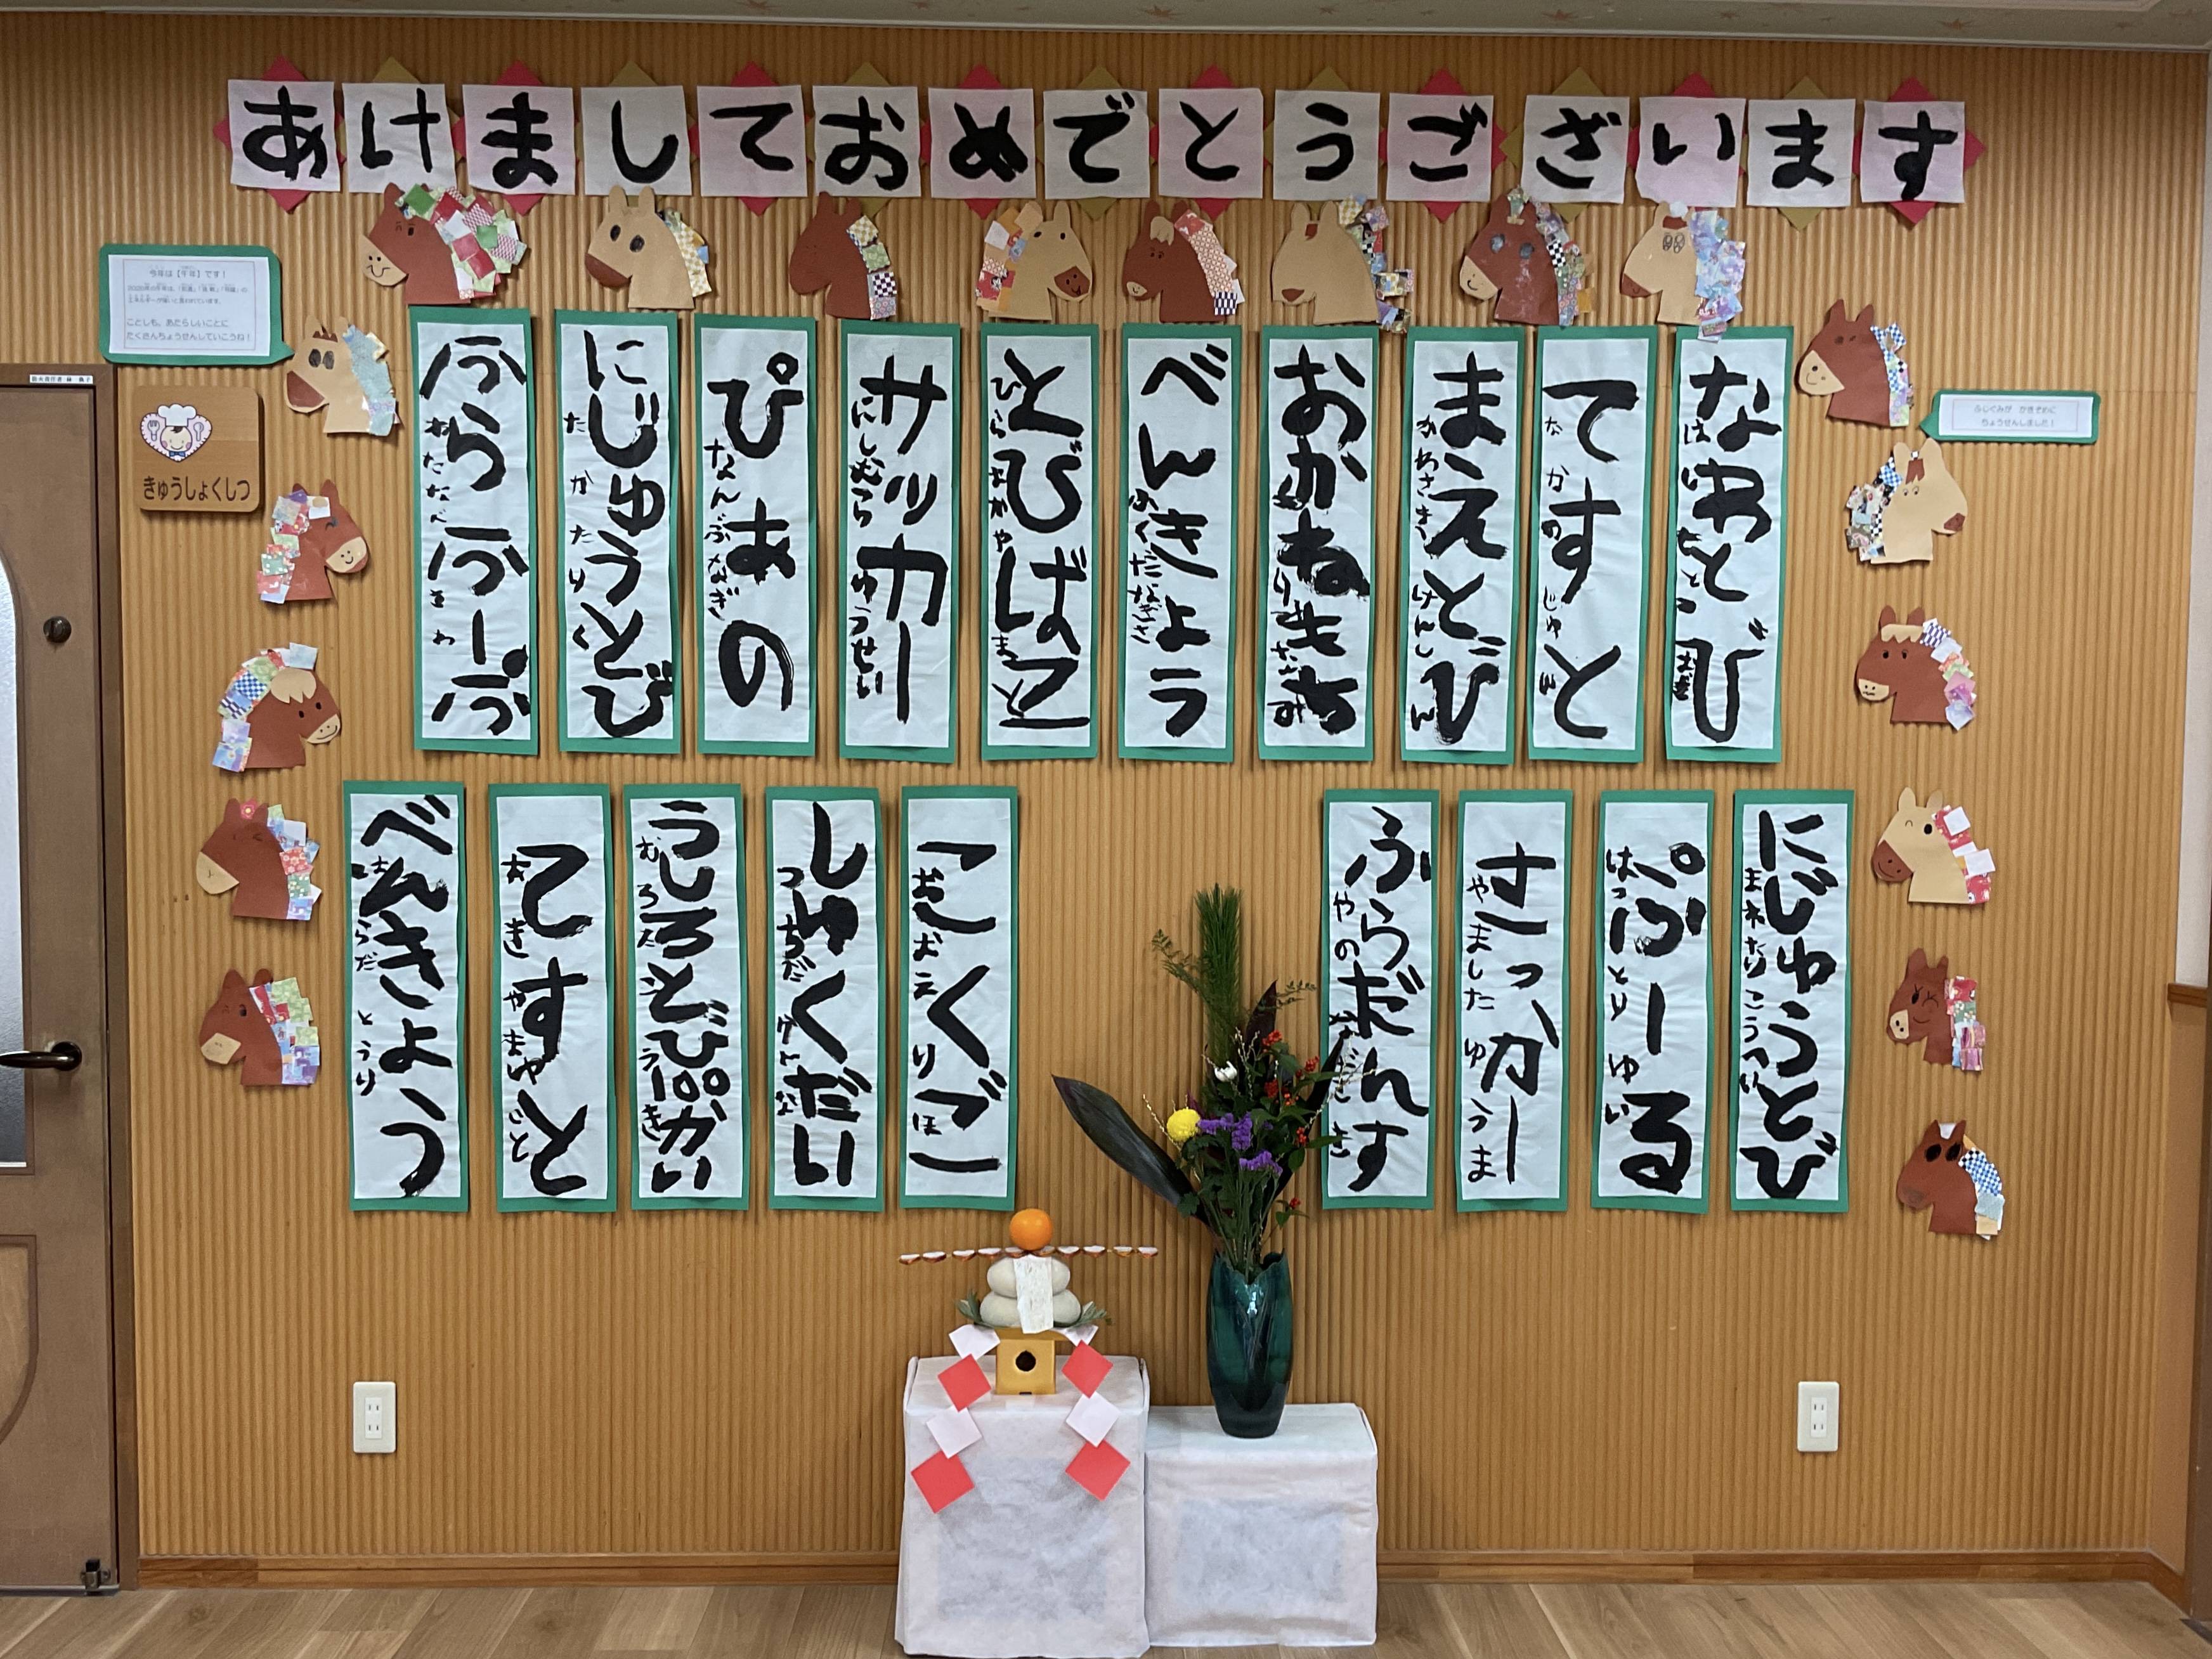 あけましておめでとうございます
今年は【午年】です！
ことしも、あたらしいことに
たくさんちょうせんしていこうね！
きゅうしょくしつ
ふじぐみが かきぞめに
ちょうせんしました！
なわとび
てすと
なかの じゅん
まえとび
かわさき けんしん
おかねもち
べんきょう
ふくだなぎさ
とびばこ
ひらおかやまと
サッカー
にしむらゆうせい
ぴあの
なんぶなぎ
にじゅうとび
たかたりく
ふらふーぷ
わたなべ
にじゅうとび
ぷーる
はっとりゆい
さっかー
やましたゆうま
ふらだんす
やの
こくご
しゅくだい
つちだ
うしろとび100かい
むろ
てすと
あきやま
べんきょう
はらだ とうり